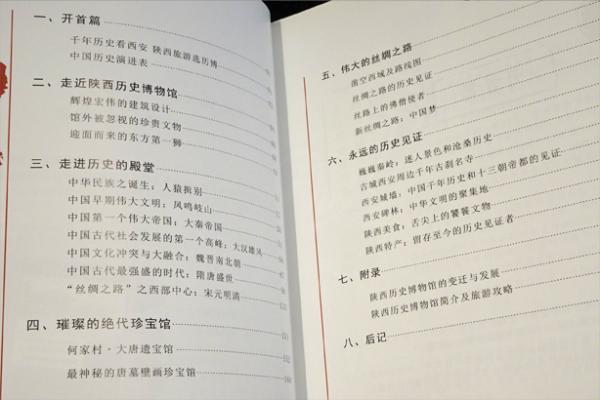 一、开首篇
千年历史看西安 陕西旅游选历博
中国历史演进表
二、走近陕西历史博物馆
辉煌宏伟的建筑设计
馆外被忽视的珍贵文物
迎面而来的东方第一狮
三、走进历史的殿堂
中华民族之诞生：人猿揖别
中国早期伟大文明：凤鸣岐山
中国第一个伟大帝国：大秦帝国
中国古代社会发展的第一个高峰：大汉雄风
中国文化冲突与大融合：魏晋南北朝
中国古代最强盛的时代：隋唐盛世
“丝绸之路”之西部中心：宋元明清
四、璀璨的绝代珍宝馆
何家村·大唐遗宝馆
最神秘的唐墓壁画珍宝馆
五、伟大的丝绸之路
凿空西域及路线图
丝绸之路的历史见证
丝路上的佛僧使者
新丝绸之路：中国梦
六、永远的历史见证
巍巍秦岭：迷人景色和沧桑历史
古城西安周边千年古刹名寺
西安城墙：中国千年历史和十三朝帝都的见证
西安碑林：中华文明的聚集地
陕西美食：舌尖上的饕餮文物
陕西特产：留存至今的历史见证者
七、附录
陕西历史博物馆的变迁与发展
陕西历史博物馆简介及旅游攻略
八、后记